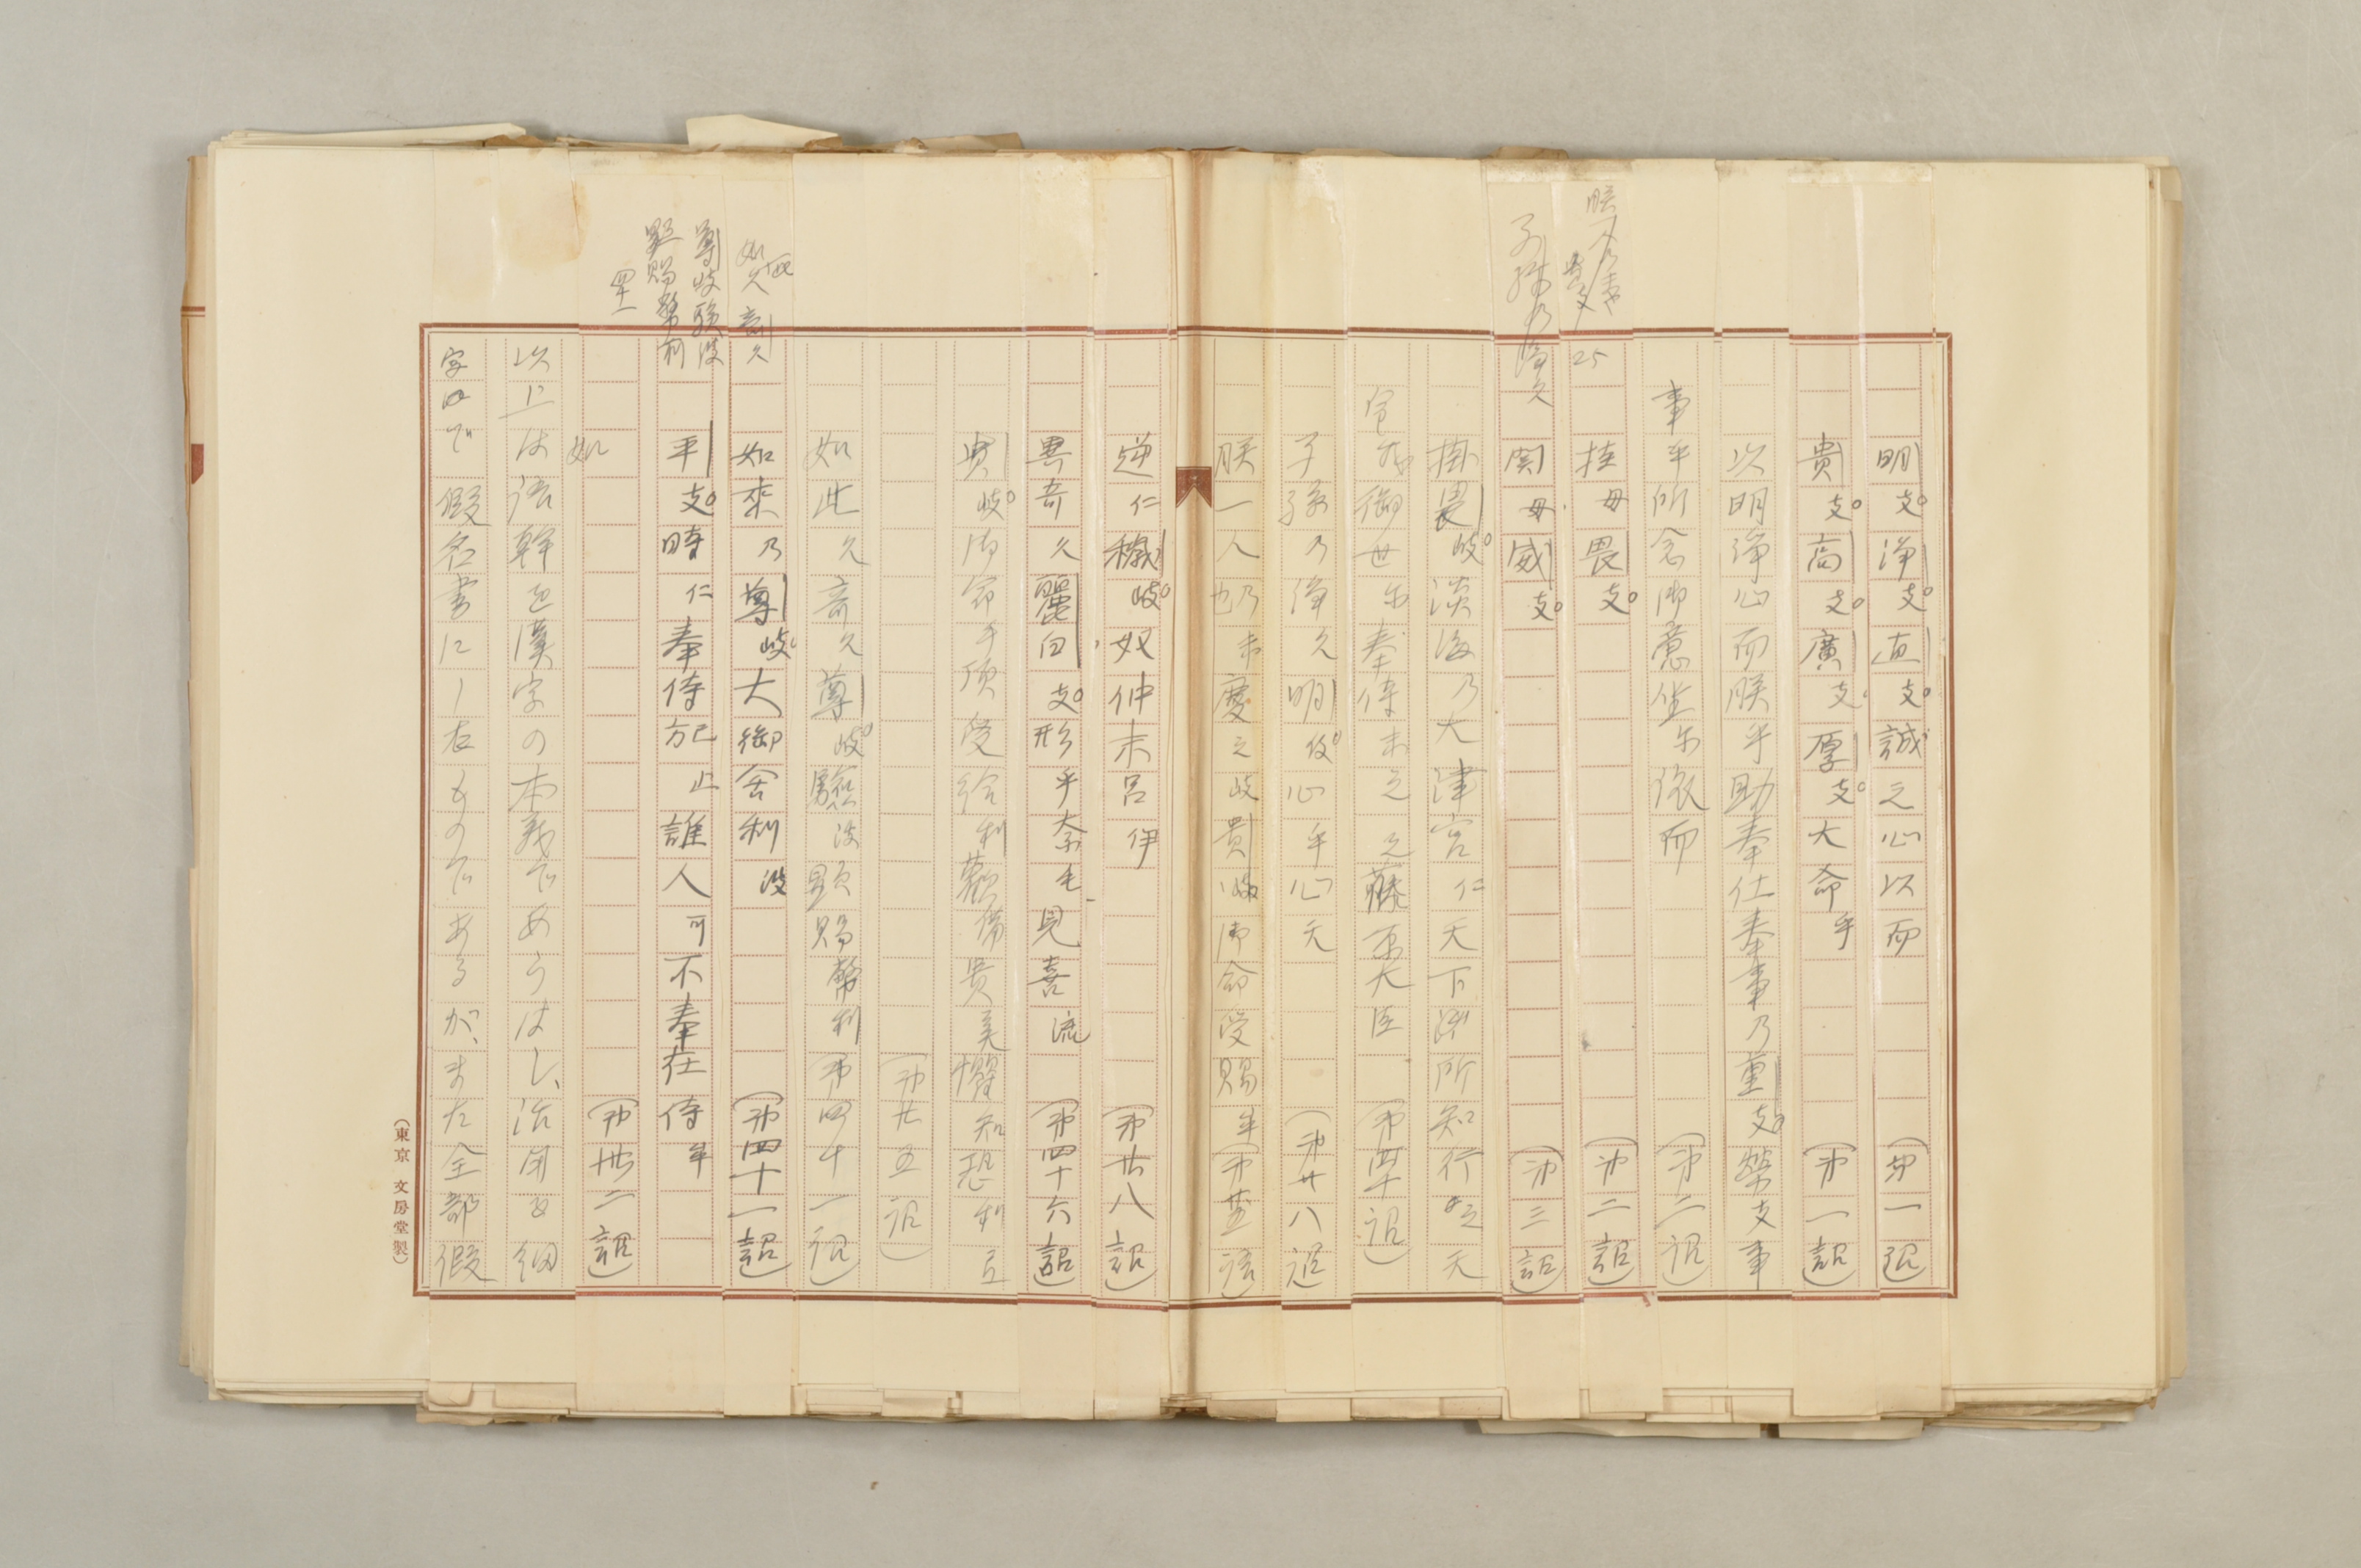 明支淨支直支誠之心以而 (第一詔)
貴支高支廣支厚支大命乎 (第一詔)
以明淨心而朕乎助奉仕奉事乃重支勞支事
事乎所念御意坐尓依而 (第二詔)
25
挂母畏支 (第二詔)
関母威支 (第三詔)
掛畏岐淡海乃大津宮仁天下所知行之天
御世尓奉侍末之之藤原大臣 (第四十詔)
子孫乃淨久明伎心乎心天 (第廿八詔)
朕一人乃未慶之岐貴岐御命受賜牟
逆仁穢岐奴仲末呂伊 (第廿八詔)
異奇久麗白支形乎奈毛見喜流 (第四十六詔)
貴岐御命乎頂受給利歡備貴美懼知恐利
(第廿五詔)
如此久奇久尊岐驗波顯賜弊利 (第四十一詔)
如來乃尊岐大御舍利波 (第四十一詔)
尊岐驗波
顯賜弊利
四十一
平支時仁奉侍己止方誰人可不奉在侍牟
如 (第卅二詔)
以上は語幹を漢字の本義であらはし、活用を細
字 で假名書にし右ものであるが、また全部假
(東京 文房堂製)